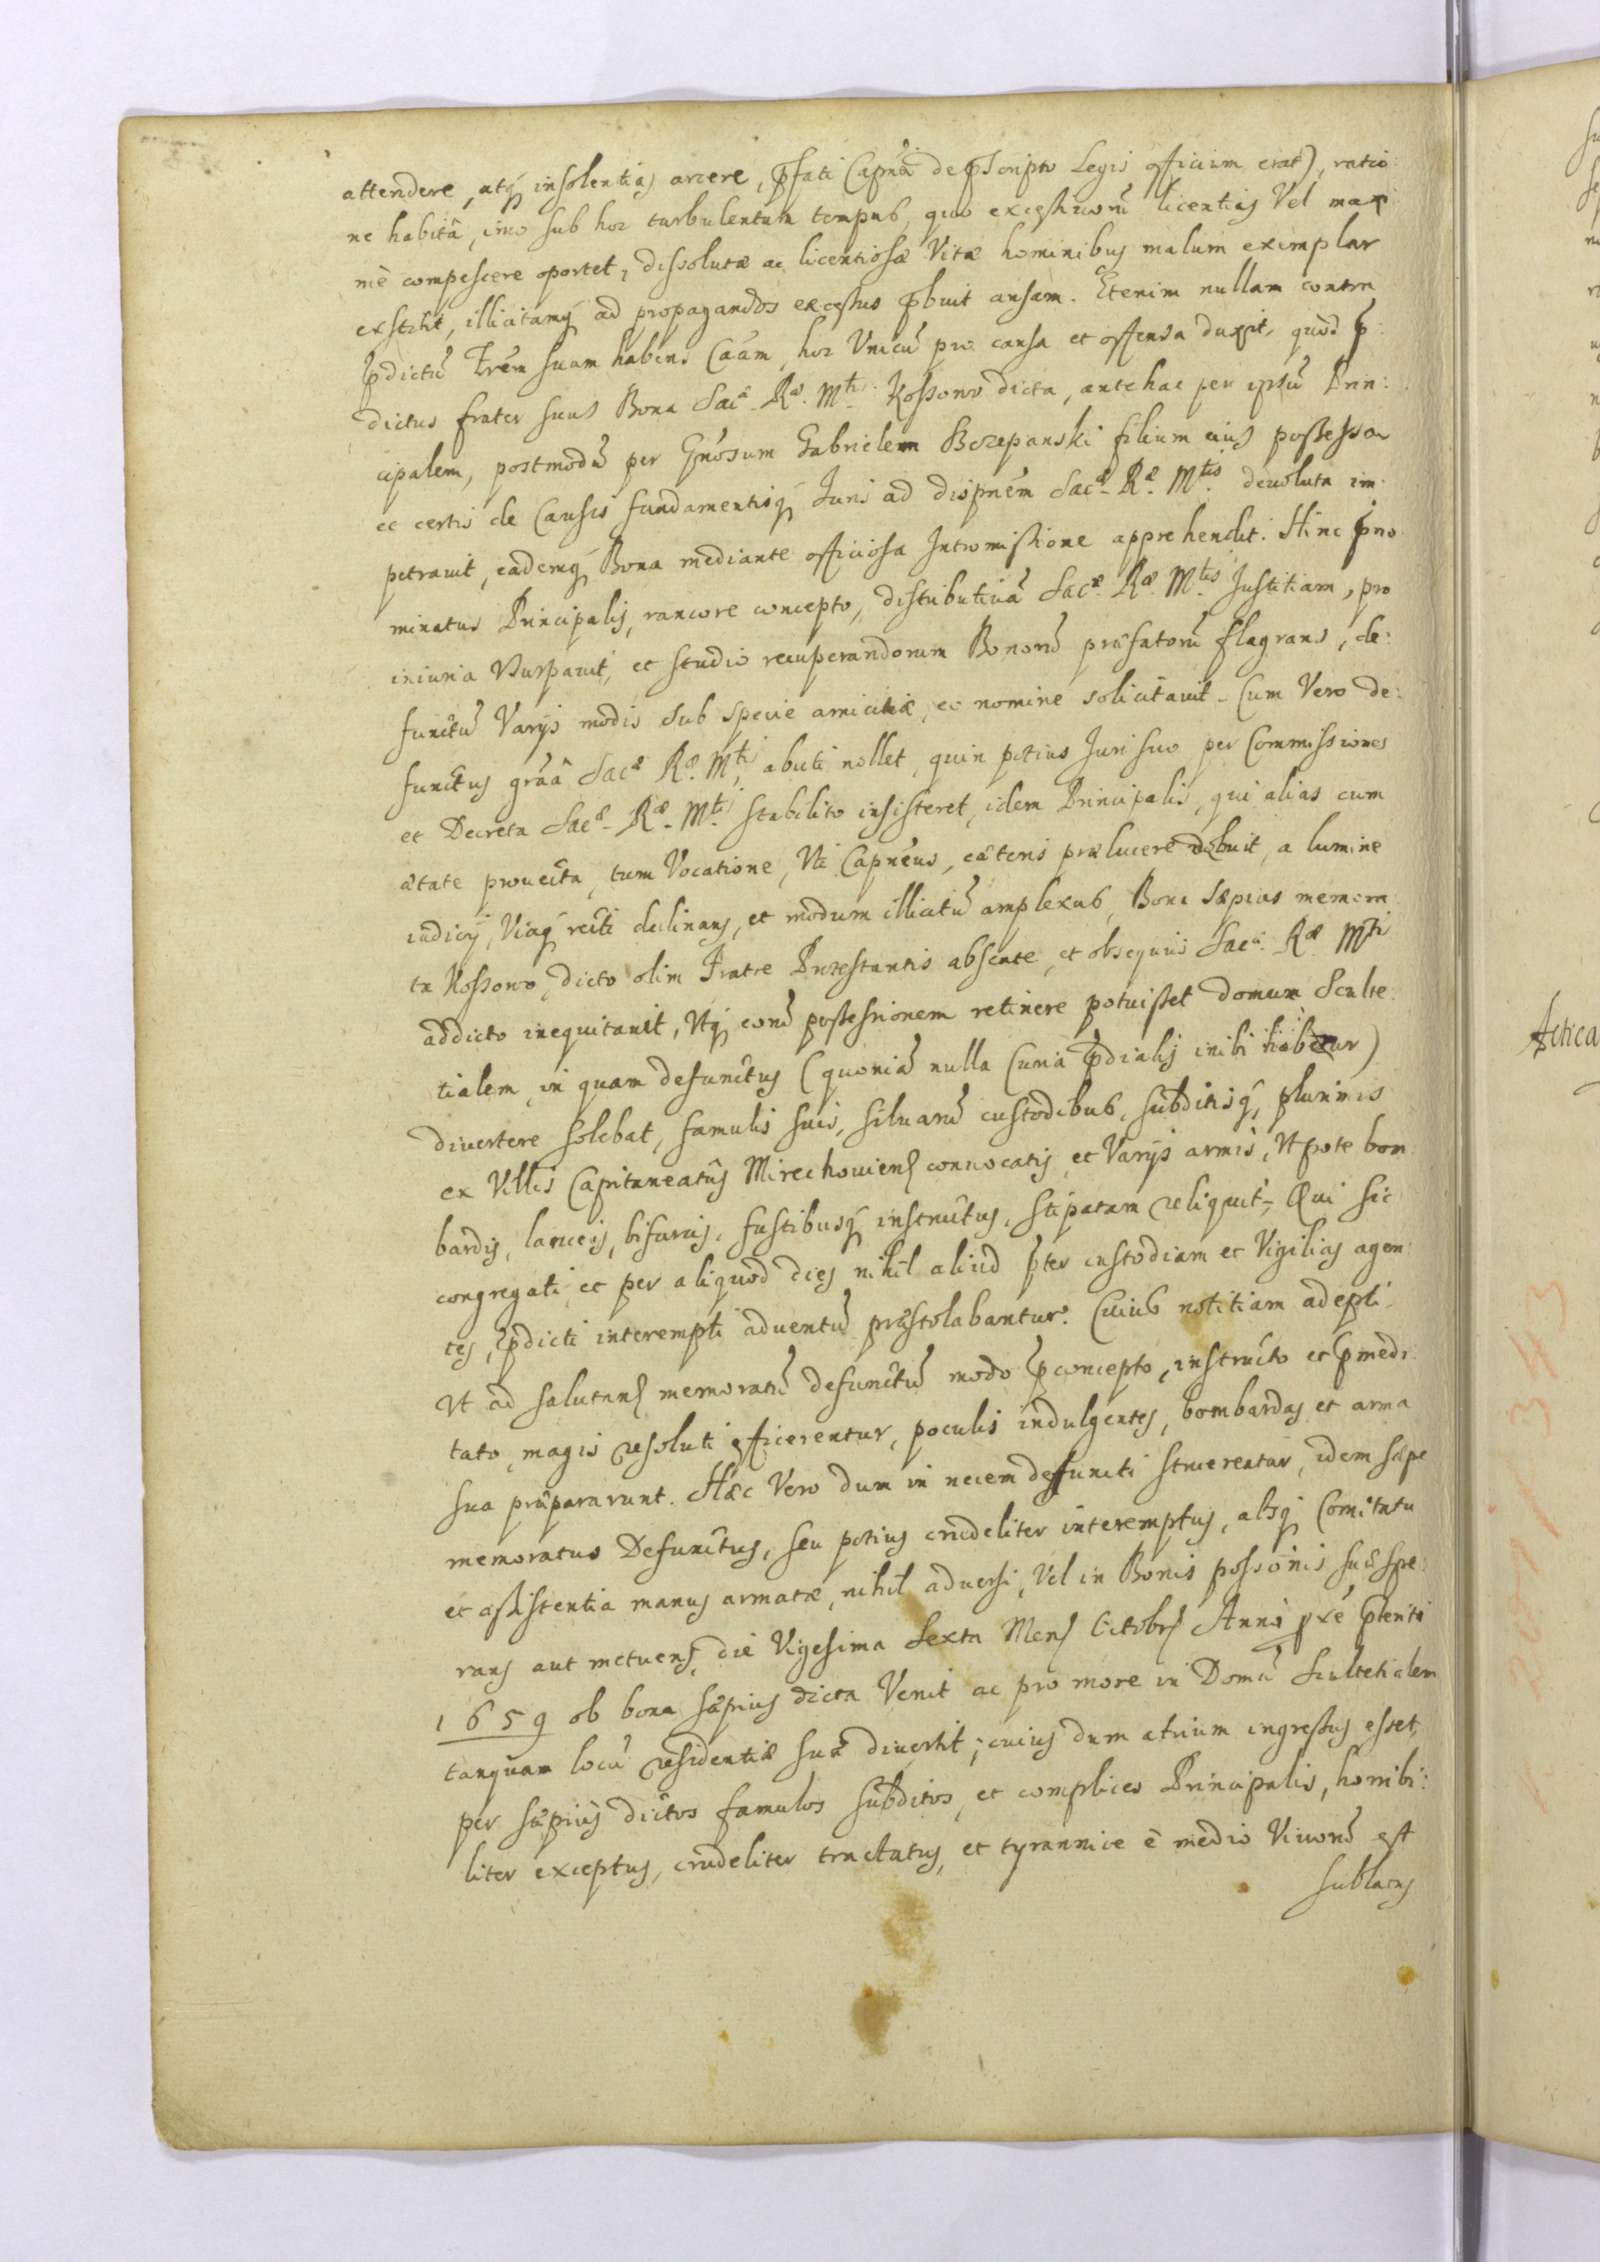 attendere, atq́ insolentias arcere, p̄fati Capnêi de p̄scripto Legis officium erat), ratio
ne habitâ, imo sub hoc turbulentum tempus, quo excessiuorũ licentias Vel max
mè compescere oportet, dissolutæ ac licentiosæ Vitæ hominibus malum exemplar
exstitit, illicitamq́ ad propagandos excessus p̄buit ansam. Etenim nullam contra
p̄dictũ Frẽm suum habens Cãam, hoc Vnicũ pro causa et offensa duxit, quod p̄
dictus frater suus Bona Sacæ Ræ. Mtis Kossowo dicta, antehac per ipsũ Prin:
cipalem, postmodũ per Gnosum Gabrielem Szczepanski filium eius possessa
ec certis de Causis fundamentisq́ Juris ad dispnẽm Sacæ Ræ. Mtis deuoluta im
petrauit, eademq́ Bona mediante officiosa Intromissione apprehendit. Hinc p̄no
minatus Principalis, rancore concepto, distributiuã Sacæ. Ræ. Mtis Justitiam, pro
iniuria Vsurpauit, et studio recuperandorum Bonorũ præfatorũ flagrans, de:
functũ Varÿs modis sub specie amicitiæ, ec nomine solicitauit. Cum Vero de:
functus grâa Sacæ Ræ. Mtis, abuti nollet, quin potius Juri suo per Commissiones
et Decreta Sacæ Ræ. Mtis stabilito insisteret, idem Principalis, qui alias cum
ætate prouecta, tum Vocatione, Vti Capnêus, cæteris prælucere debuit, a lumine
iudicÿ, Viaq́ recti declinans, et modum illicitũ amplexus, Bona sæpius memora
ta Kossowo, dicto olim Fratre Protestantis absente, et obsequiis Sacæ Ræ Mtis
addicto inequitauit, Vtq́ eorũ possessionem retinere potuisset domum Sculte
tialem, in quam defunctus (quoniã nulla Curia p̄dialis inibi habetur)
diuertere solebat, famulis suis, siluarũ custodibus, subditisq́, plurimis
ex Villis Capitaneatûs Mirechouiens conuocatis, et Varÿs armis, Vtpote bom
bardis, lanceis, bifurcis, fustibusq́ instructus, stipatam reliquit, Qui sic
congregati, et per aliquod dies nihil aliud p̄ter custodiam et Vigilias agen
tes, p̄dicti interempti aduentũ præstolabantur. Cuius notitiam adepti,
Vt ad salutans memoratũ defunctũ modo p̄concepto, instructo et p̄medi
tato, magis resoluti efficerentur, poculis indulgentes, bombardas et arma
sua præpararunt. Hæc Vero dum in necem defuncti struerentur, idem sæpe
memoratus Defunctus, seu potius crudeliter interemptus, absq́ Comitatu
et assistentia manus armatæ, nihil aduersi, Vel in Bonis possoinis suæ spe
rans aut metuens, die Vigesima Sexta Mens Octobr Anni pxê p̄teriti
1659 ob bona sæpius dicta Venit ac pro more in Domũ Scultetialem
tanquam locũ residentiæ suæ diuertit; cuius dum atrium ingressus esset,
per sæpius dictos famulos subditos, et complices Principalis, horribi:
liter exceptus, crudeliter tractatus, et tyrannice è medio Viuorũ est
sublatus
Actica